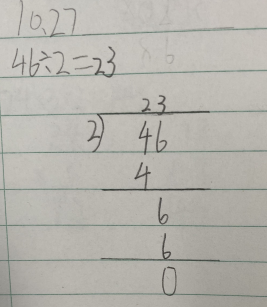 10.27
46÷2=23
23
2)46
4
6
6
0